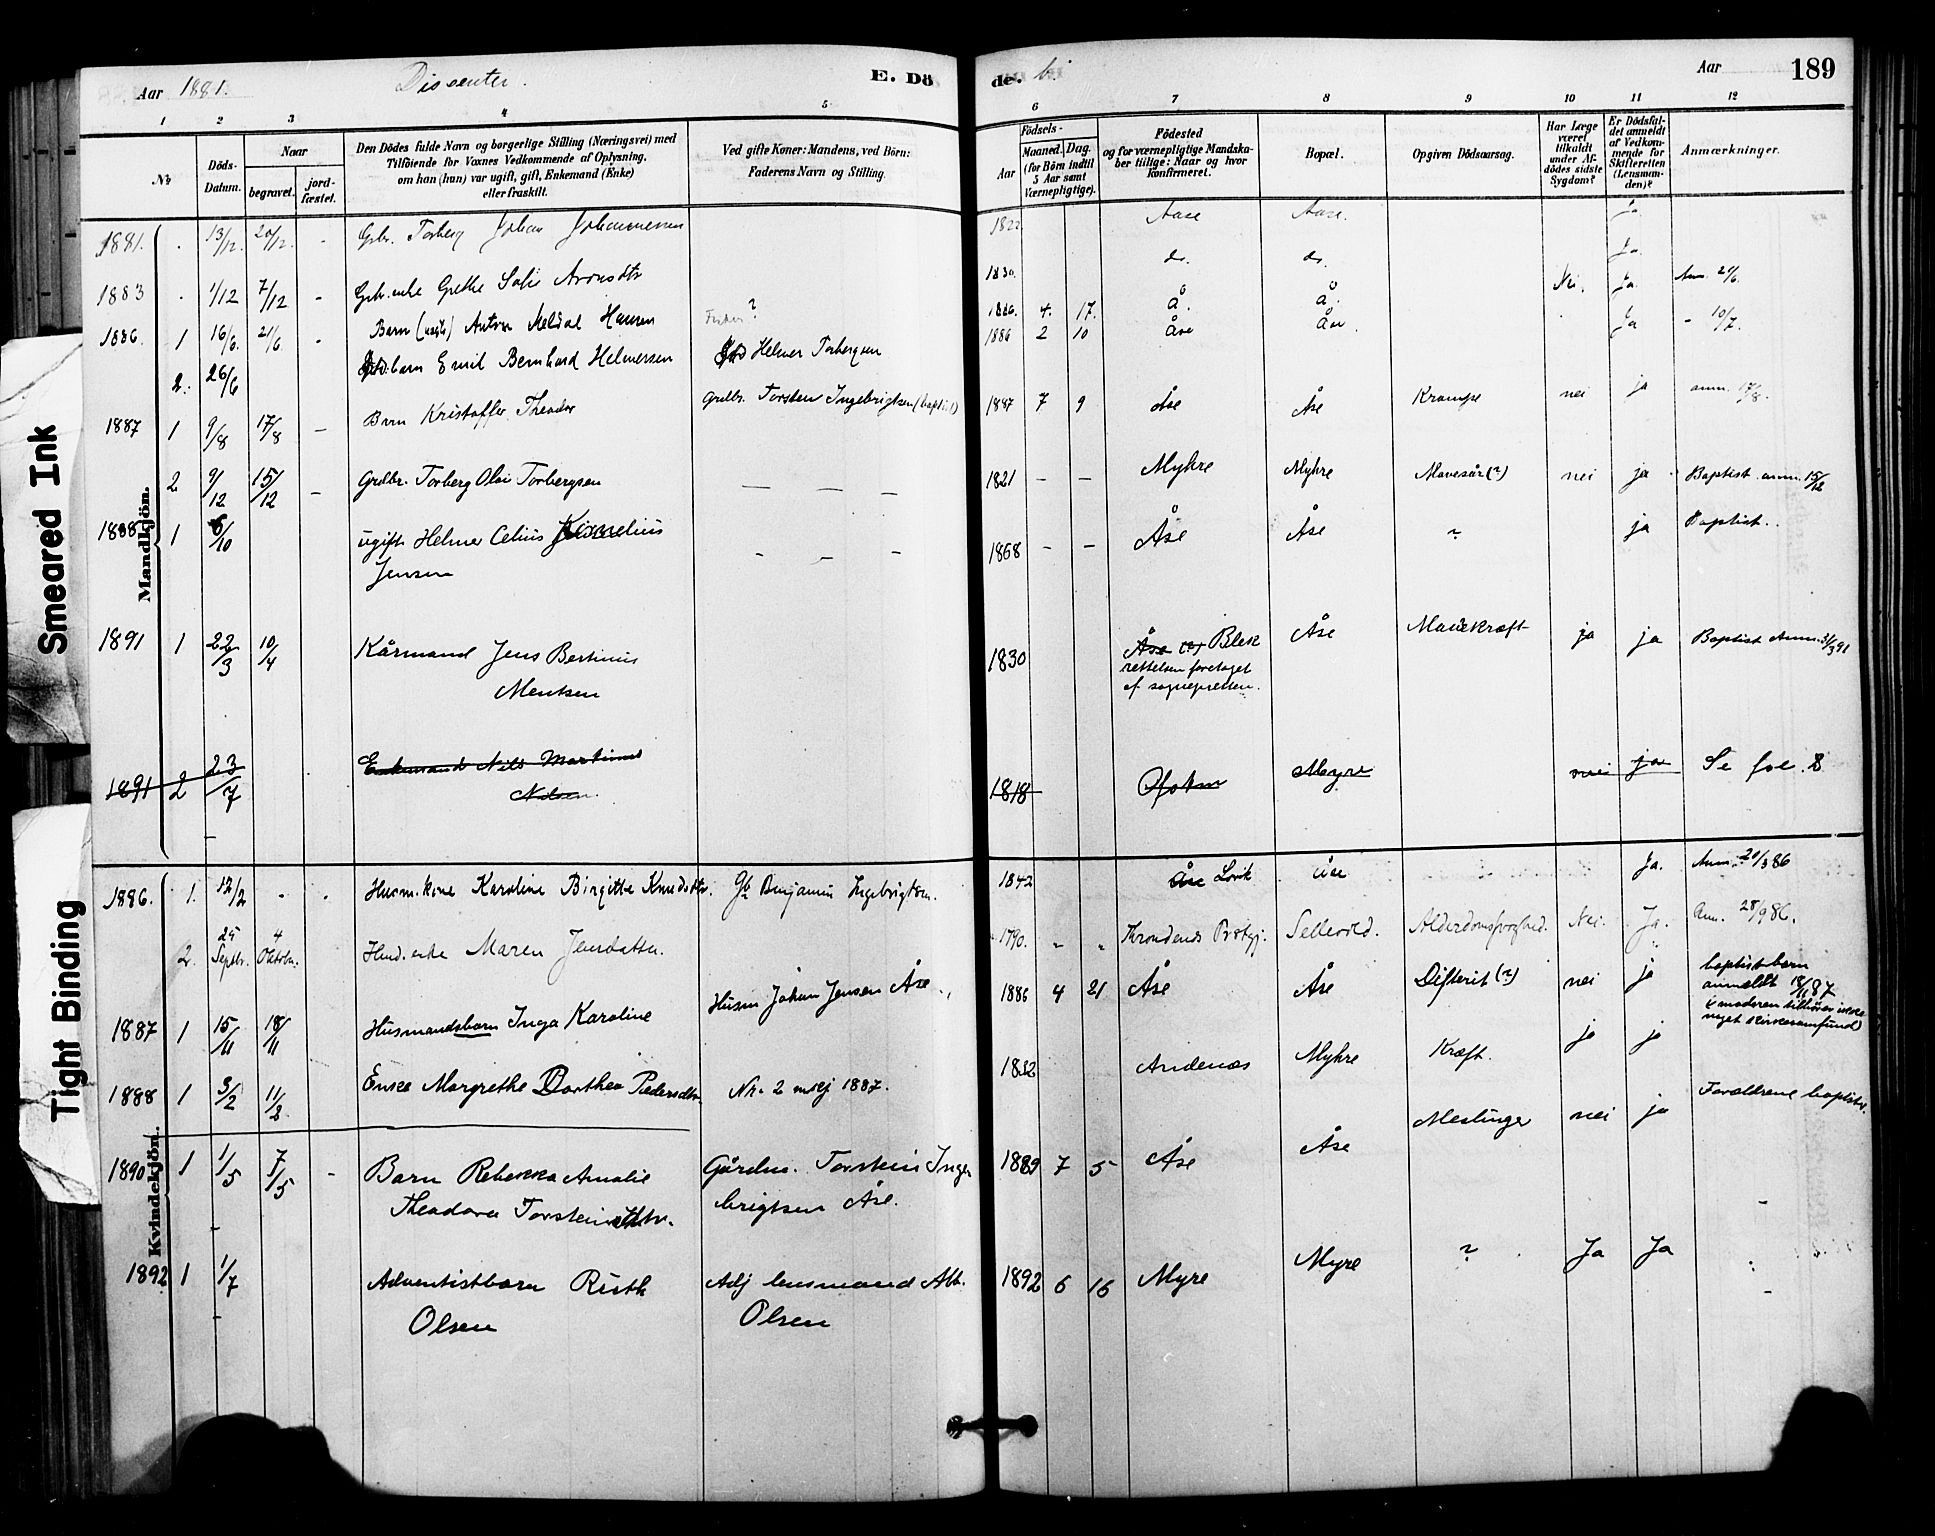 Aar 1881. Dissenter. E. Dö
1 2 3 4 5
No Döds-Datum. Naar begravet. jord-fæstet. Den Dödes fulde Navn og borgerlige Stilling (Næringsvei) med Tilföiende for Voxnes Vedkommende af Oplysning, om han (hun) var ugift, gift, Enkemand (Enke) eller fraskilt. Ved gifte Koner: Mandens, ved Börn: Faderens Navn og Stilling.
Mandkjön.
1881. 13/12. 20/12. - Gbr. Torberg Johan Johannessen
1883 1/12 7/12 - Grethe Sofie
1886. 1 16/6. 21/6 - Barn Anton Meldal Hansen ?
2. 26/6 barn Emil Bernhard Helmersen Helmer Torbergsen
1887 1 9/8 17/8 - Barn Kristoffer Theodor Grdbr. Torsten Ingebrigtsen (baptist)
2 9/12 15/12 - Grdbr. Torberg Olai Torbergsen - - -
1888 1 /10 ugift Helmer Celius Kornelius - - -
Jensen
1891 1 22/3 10/4 Kårmand Jens Bertinus
Mentsen
1891 2 23/7 Enkemand Nils Martinus
Nilsen.
Kvindekjön.
1886. 1. 12/2 - . Husm.kone Karoline Birgitte Knudsdtr. Benjamin Ingebrigtsen.
2. 25 Septbr. 4 Oktober. enke Maren Jensdatter
1887 1 15/11 18/11 Husmandsbarn Inga Karoline Husm Johan Jensen Åse
1888 1 3/2 11/2 Enke Margrethe Dorthea Pedersdtr Nr. 2 1887.
1890 1 1/5 7/5 - Barn Rebekka Amalie Gårdm. Torstein Inge
Theodora Torsteinsdtr. brigtsen Åse.
1892 1 1/7 Adventistbarn Ruth Adj lensmand Alb.
Olsen Olsen
de. Aar 189
6 7 8 9 10 11 12
Födsels- Aar Maaned. Dag. (for Börn indtil 5 Aar samt Værnepligtige). Födested og for værnepligtige Mandska-ber tillige: Naar og hvor konfirmeret. Bopæl. Opgiven Dödsaarsag. Har Læge været tilkaldt under Af-dödes sidste Sygdom? Er Dödsfal-det anmeldt af Vedkom-mende for Skifteretten (Lensman-den)? Anmærkninger.
1822 Aase Aase. Ja.
1830. do. do. Ja.
1886. 4. 17. Å. Å. Nei. Ja. Anm. 21/6.
1886 2 10 Åse Åse. Ja - 10/7.
1887 7 9 Åse Åse Krampe nei ja anm. 17/8.
1821 - - Myhre Myhre Mavesår (?) nei ja Baptist anm. 15/12
1868 - - Åse Åse ? ja Baptist.
1830 Åse Blek Åse Mavekræft ja ja Baptist Anm. 31/3 91
rettelsen foretaget
af sognepresten.
1818 Myre nei ja Se fol. 8
1842 Åse Lovik Åse Ja. Anm. 21/3 86
1790. " " Alderdomssvaghed. Nei. Ja. Anm. 28/9 86.
1886 4 21 Åse Åse Difterit (?) nei ja baptistbarn
anmeldt 18/11 87
(moderen tilhører ikke
noget kirkesamfund)
1832 Andenæs Myhre Kræft. ja ja
1889 7 5 Åse Åse Meslinger nei ja Forældrene baptister.
1892 6 16 Myre Myre ? Ja Ja
Smeared Ink
Tight Binding